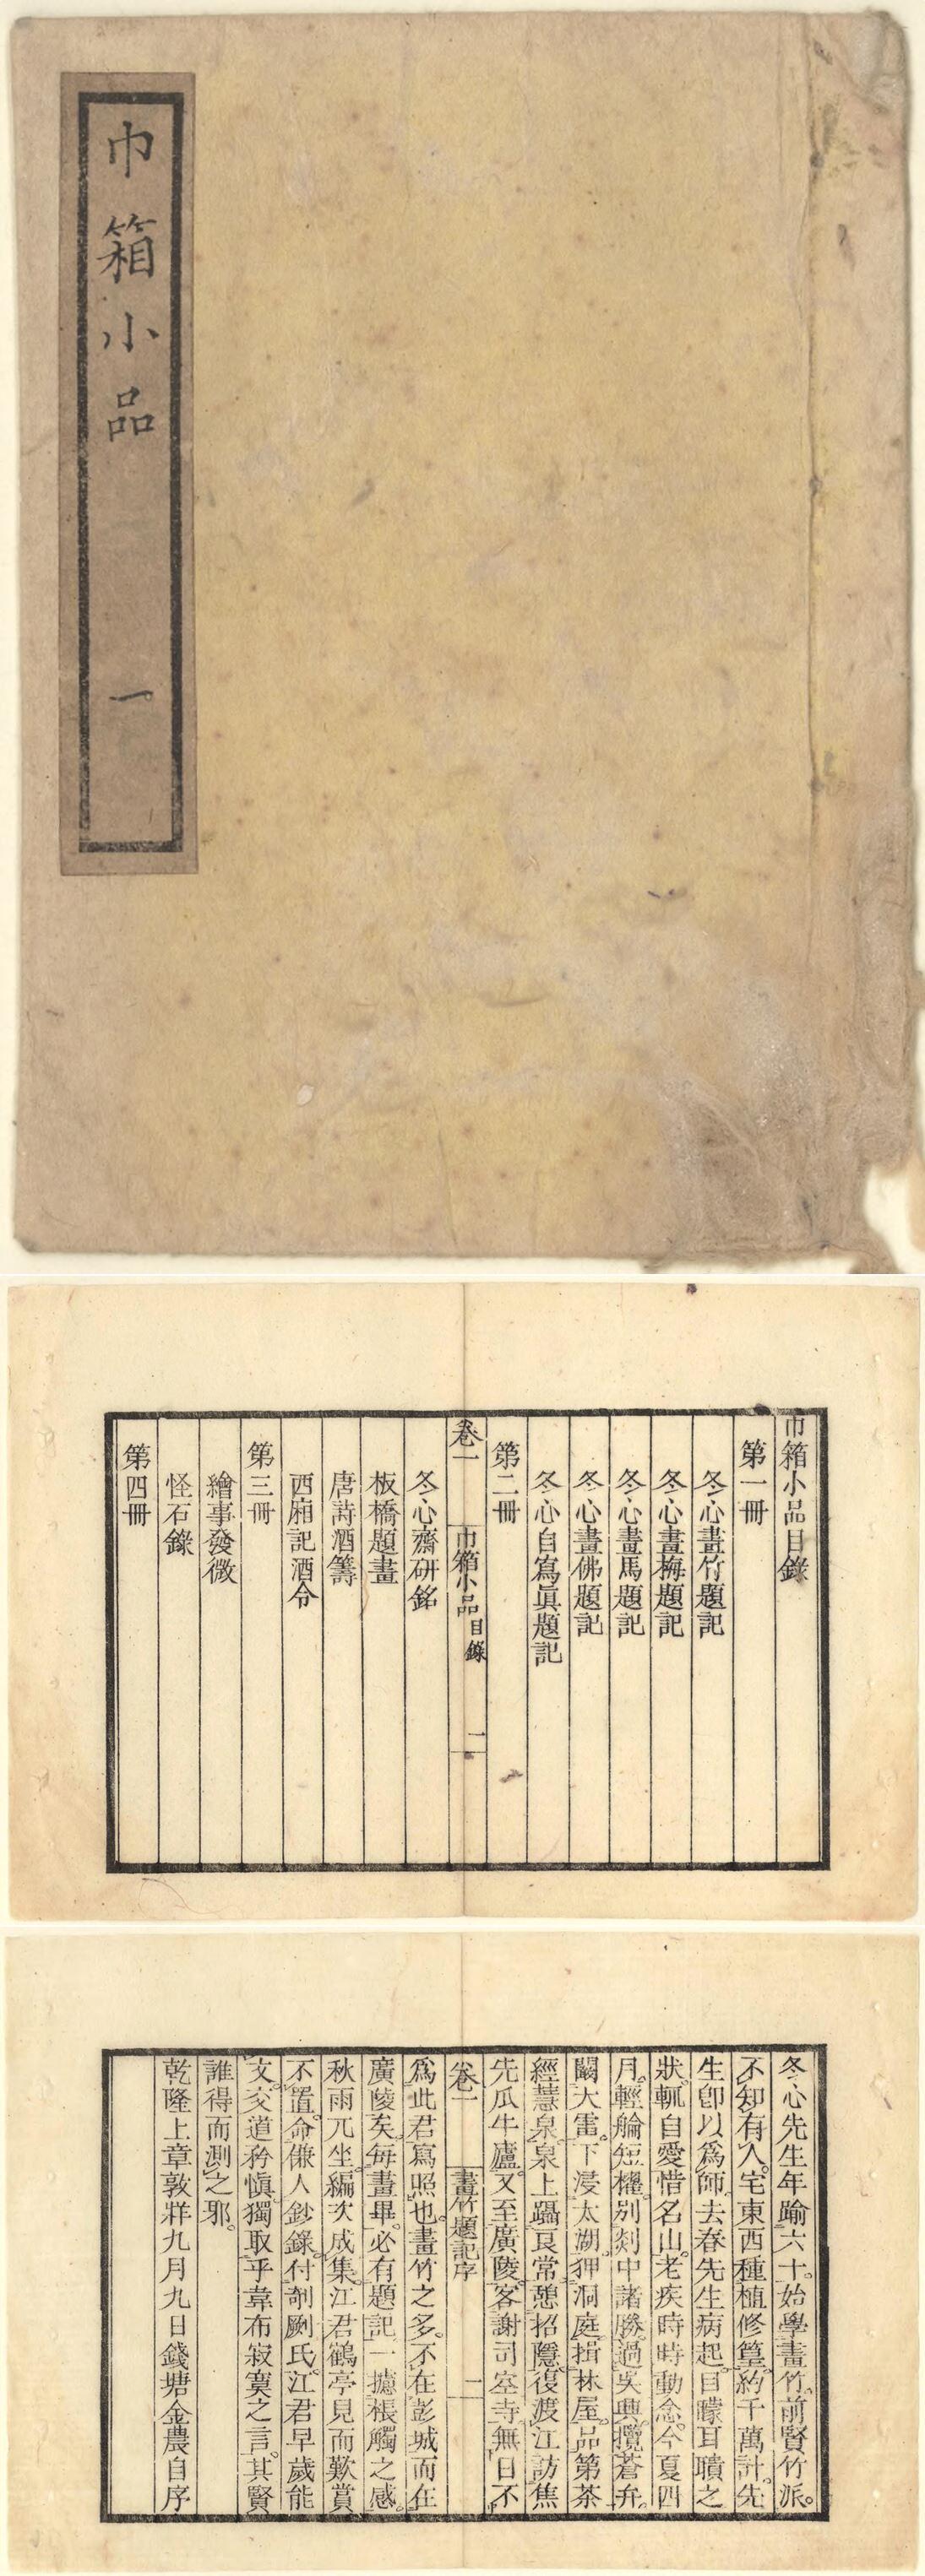 巾箱小品
一
巾箱小品目錄
第一冊
冬心畫竹題記
冬心畫梅題記
冬心畫馬題記
冬心畫佛題記
冬心自寫眞題記
第二冊
卷一 巾箱小品 目錄 一
冬心齋硏銘
板橋題畫
唐詩酒籌
西廂記酒令
第三冊
繪事發微
怪石錄
第四冊
冬心先生年踰六十。始學畫竹。前賢竹派。
不知有人。宅東西種植修篁。約千萬計。先
生卽以爲師。去春先生病起。目矇耳聵之
狀。輒自愛惜名山。老疾時時動念。今夏四
月。輕艑短櫂。別剡中諸勝。過吳興。攬蒼弁。
闞大雷。下浸太湖。狎洞庭。揖林屋。品第茶
經慧泉。泉上躡艮常。憩招隱。復渡江訪焦
先瓜牛廬。又至廣陵。客謝司空寺。無日不
卷一 畫竹題記序 一
爲此君寫照也。畫竹之多。不在彭城而在
廣陵矣。每畫畢。必有題記。一攄棖觸之感。
秋雨兀坐。編次成集。江君鶴亭見而歎賞
不置。命傔人鈔錄。付剞劂氏。江君早歲能
文。交道矜愼。獨取乎韋布寂寞之言。其賢
誰得而測之邪。
乾隆上章敦牂九月九日錢塘金農自序